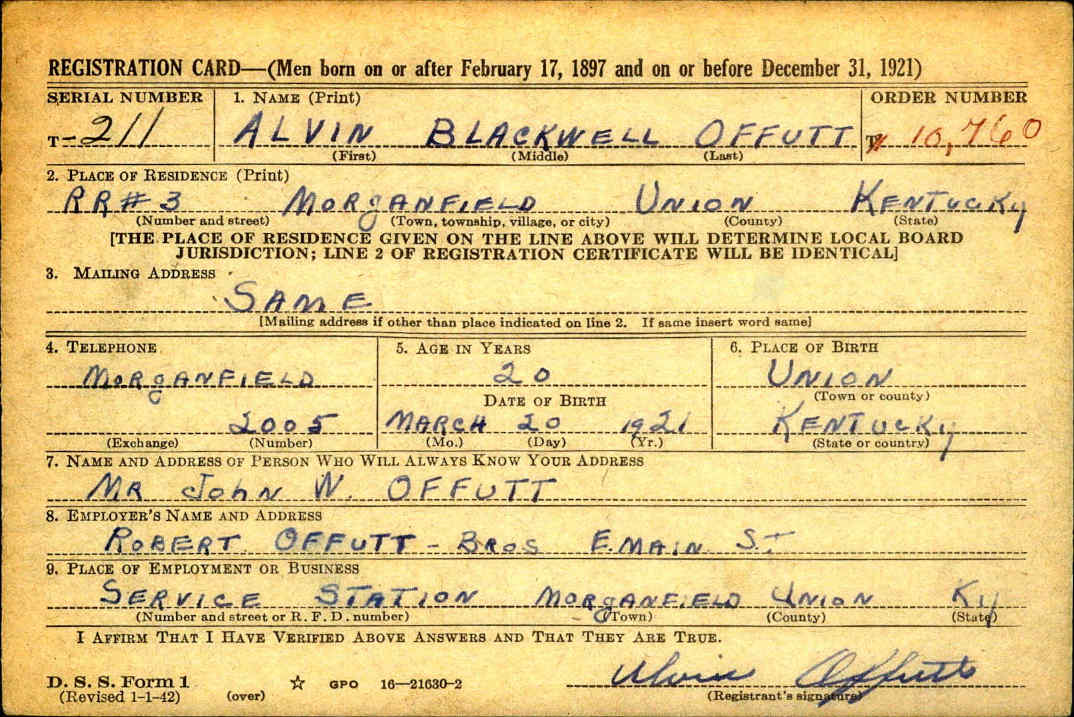 REGISTRATION CARD—(Men born on or after February 17, 1897 and on or before December 31, 1921)
SERIAL NUMBER 1. NAME (Print) ORDER NUMBER
T-211 ALVIN BLACKWELL OFFUTT T 10,760
(First) (Middle) (Last)
2. PLACE OF RESIDENCE (Print)
RR#3 MORGANFIELD UNION KENTUCKY
(Number and street) (Town, township, village, or city) (County) (State)
[THE PLACE OF RESIDENCE GIVEN ON THE LINE ABOVE WILL DETERMINE LOCAL BOARD
JURISDICTION; LINE 2 OF REGISTRATION CERTIFICATE WILL BE IDENTICAL]
3. MAILING ADDRESS
SAME
[Mailing address if other than place indicated on line 2. If same insert word same]
4. TELEPHONE 5. AGE IN YEARS 6. PLACE OF BIRTH
MORGANFIELD 20 UNION
DATE OF BIRTH (Town or county)
2005 MARCH 20 1921 KENTUCKY
(Exchange) (Number) (Mo.) (Day) (Yr.) (State or country)
7. NAME AND ADDRESS OF PERSON WHO WILL ALWAYS KNOW YOUR ADDRESS
MR JOHN W. OFFUTT
8. EMPLOYER'S NAME AND ADDRESS
ROBERT OFFUTT - BROS E. MAIN ST
9. PLACE OF EMPLOYMENT OR BUSINESS
SERVICE STATION MORGANFIELD UNION KY
(Number and street or R. F. D. number) (Town) (County) (State)
I AFFIRM THAT I HAVE VERIFIED ABOVE ANSWERS AND THAT THEY ARE TRUE.
Alvin Offutt
D. S. S. Form 1 ☆ GPO 16—21630-2
(Revised 1-1-42) (over) (Registrant's signature)